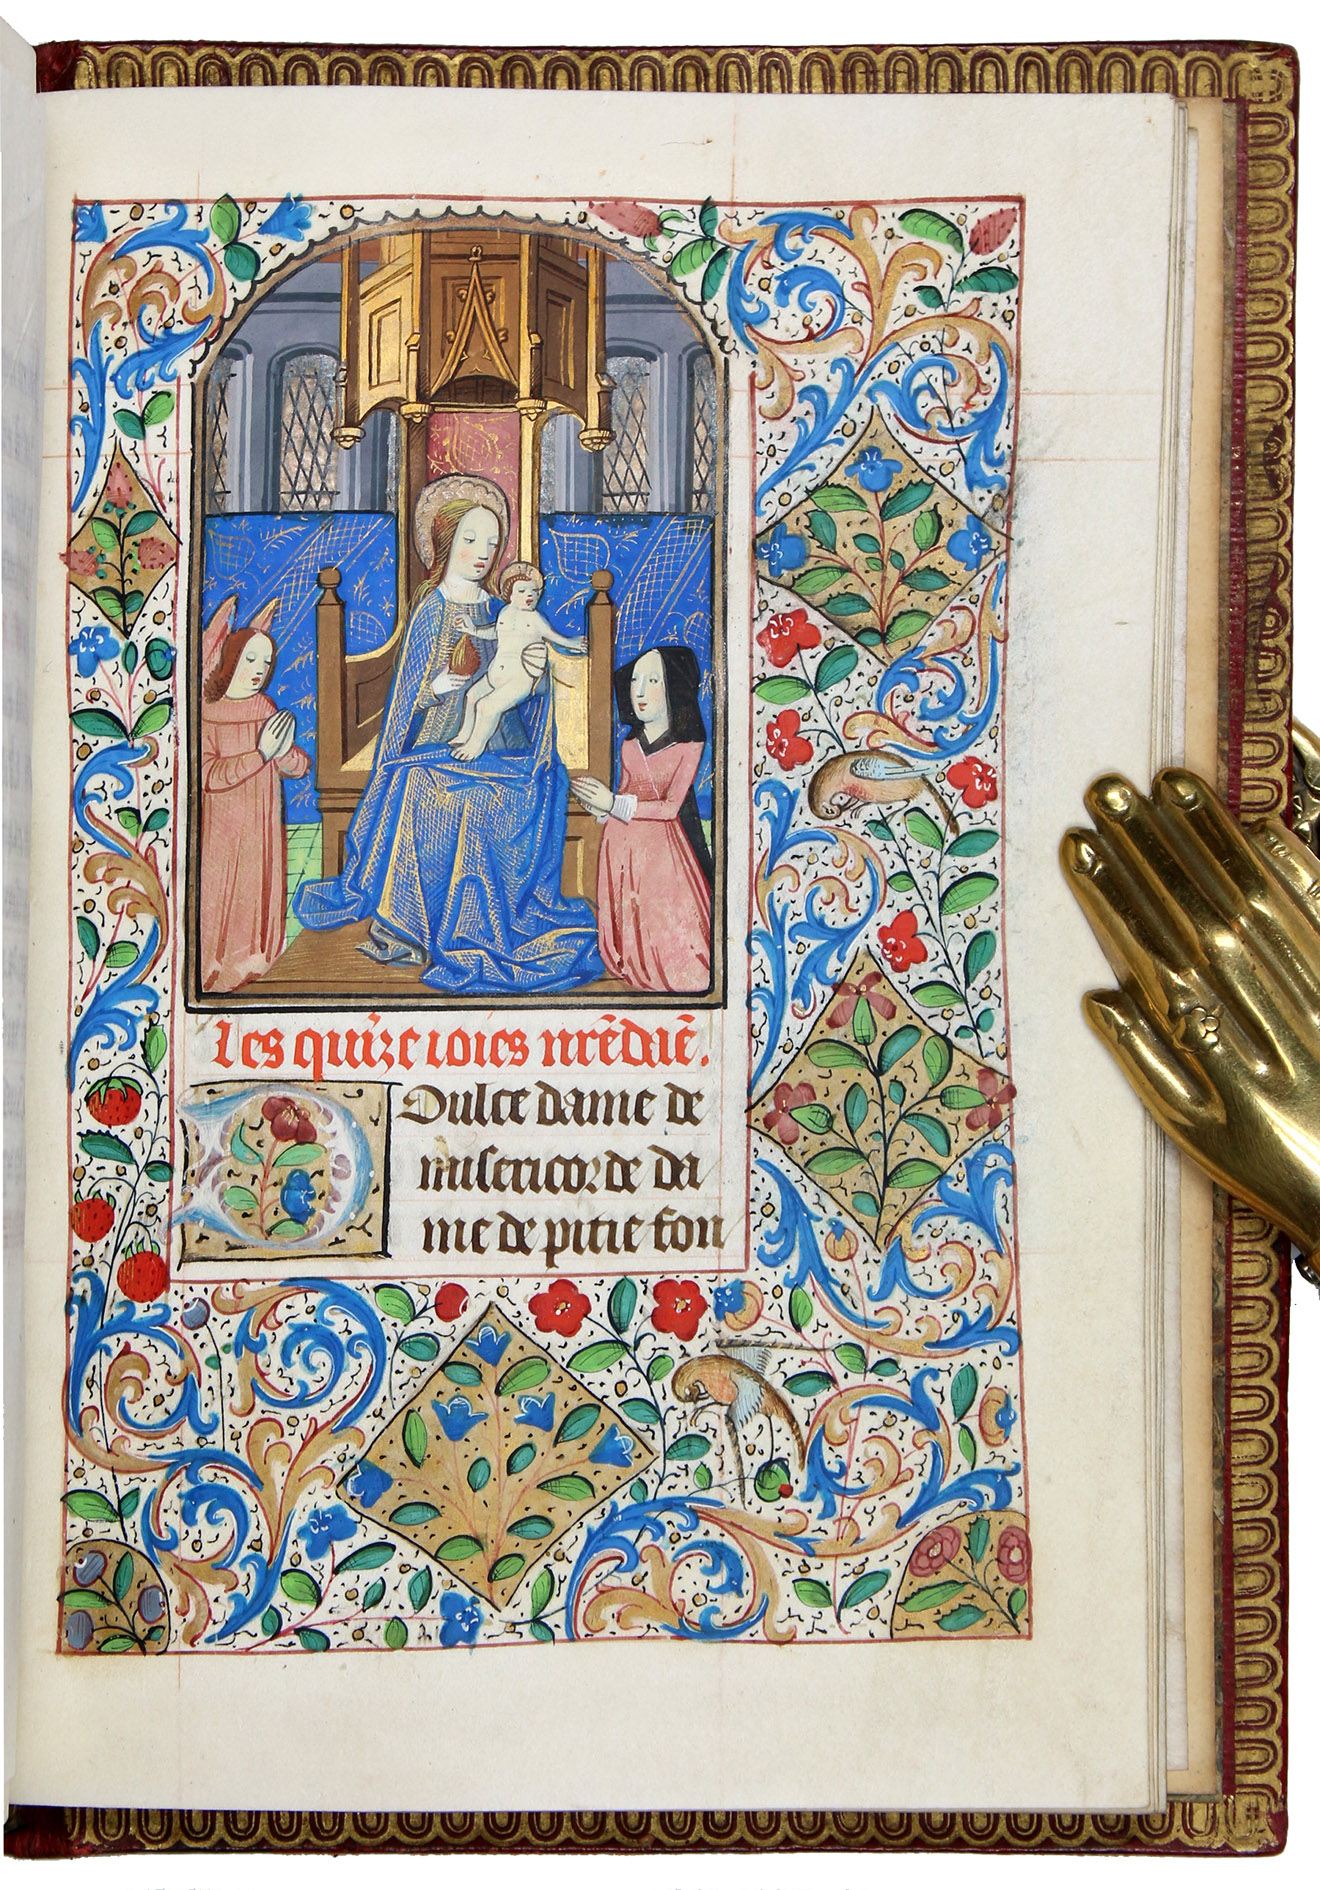 Les quĩze ioies nr̃e dãe.
Doulce dame de
misericorde da
me de pitie fon